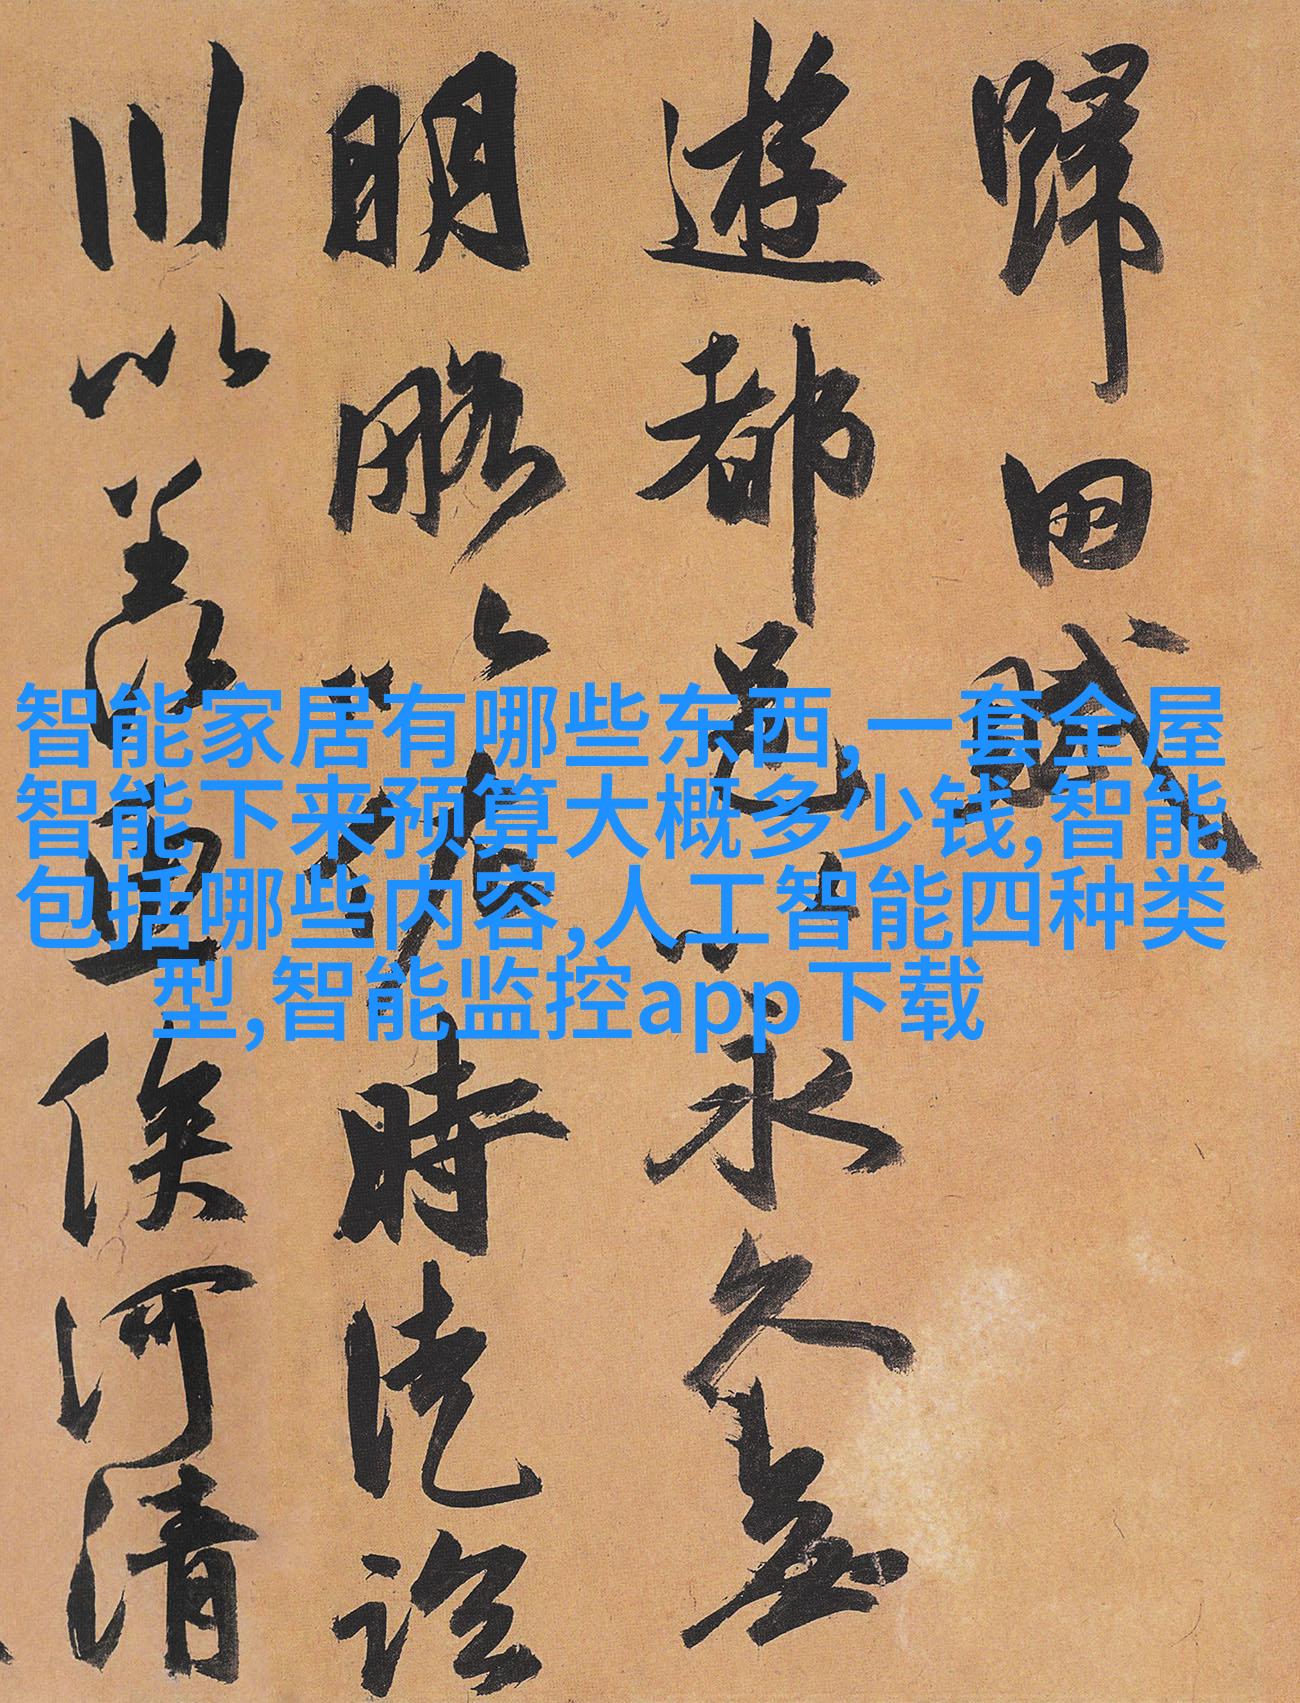 歸田賦
遊都邑以永久無
明略以佐時徒臨
川以羡魚俟河清
智能家居有哪些东西,一套全屋
智能下来预算大概多少钱,智能
包括哪些内容,人工智能四种类
型,智能监控app下载